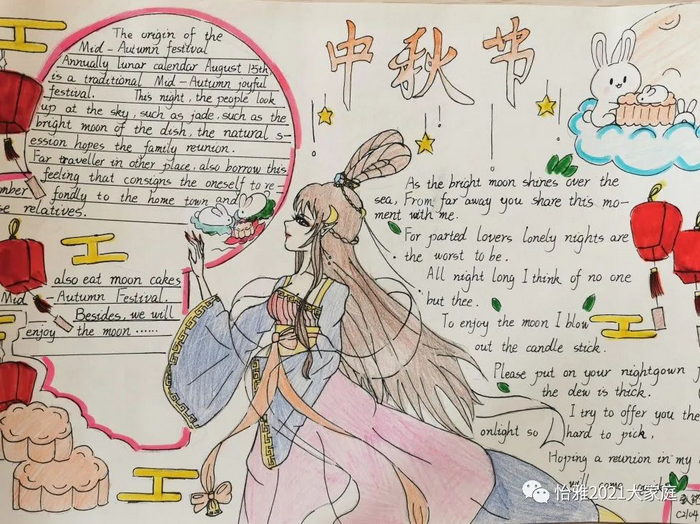 The origin of the
Mid - Autumn festival
Annually lunar calendar August 15th
is a traditional Mid - Autumn joyful
festival. This night, the people look
up at the sky, such as jade, such as the
bright moon of the dish, the natural s-
ession hopes the family reunion.
Far traveller in other place, also borrow this
feeling that consigns the oneself to re-
mber fondly to the home town and
se relatives.
also eat moon cakes
Mid - Autumn Festival.
Besides, we will
enjoy the moon ......
中秋节
As the bright moon shines over the
sea, From far away you share this mo-
ment with me.
For parted lovers lonely nights are
the worst to be.
All night long I think of no one
but thee.
To enjoy the moon I blow
out the candle stick.
Please put on your nightgown
the dew is thick.
I try to offer you the
onlight so hard to pick,
Hoping a reunion in my
will come
怡雅2021大家庭